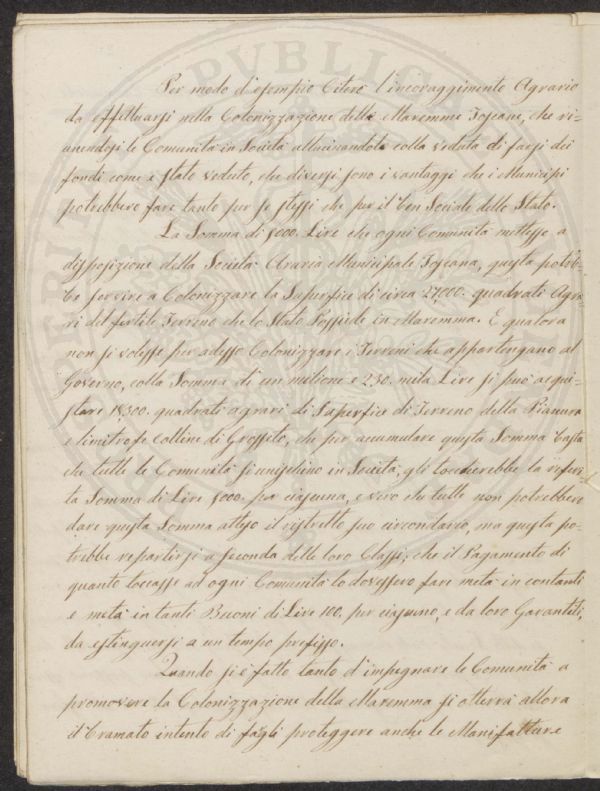 Per modo d'esempio Citerò l'incoraggimento Agrario
da effettuarsi nella Colonizzazione delle Maremme Toscane, che ri=
unendosi le Comunità in Società allucinandole colla veduta di farsi dei
fondi come è stato veduto, che diversi sono i vantaggi che i Municipj
potrebbero fare tanto per se stessi che per il ben Sociale dello Stato.
La Somma di 5000. Lire che ogni Comunità mettesse a
disposizione della Società Araria Municipale Toscana, questa potreb=
be servire a Colonizzare la Superfice di circa 27,000. quadrati Agra
ri del fertile Terreno che lo Stato Possiede in Maremma. E qualora
non si volesse per adesso Colonizzare i Terreni che appartengano al
Governo, colla Somma di un milione e 230. mila Lire si può acqui=
stare 18,300. quadrati agrari di Superfice di Terreno della Pianura
e limitrofe colline di Grosseto, che per accumulare questa Somma basta
che tutte le Comunità si unischino in Società, gli toccherebbe la referi
ta Somma di Lire 5000. per ciascuna, è vero che tutte non potrebbero
dare questa Somma atteso il ristretto suo circondario, ma questa po=
trebbe repartirsi a seconda delle loro Classi, che il Pagamento di
quanto toccasse ad ogni Comunità lo dovessero fare metà in contanti
e metà in tanti Buoni di Lire 100. per ciascuno, e da loro Garantiti,
da estinguersi a un tempo prefisso.
Quando si è fatto tanto d'impegnare le Comunità a
promovere la Colonizzazione della Maremma si otterrà allora
il bramato intento di fagli proteggere anche le Manifatture